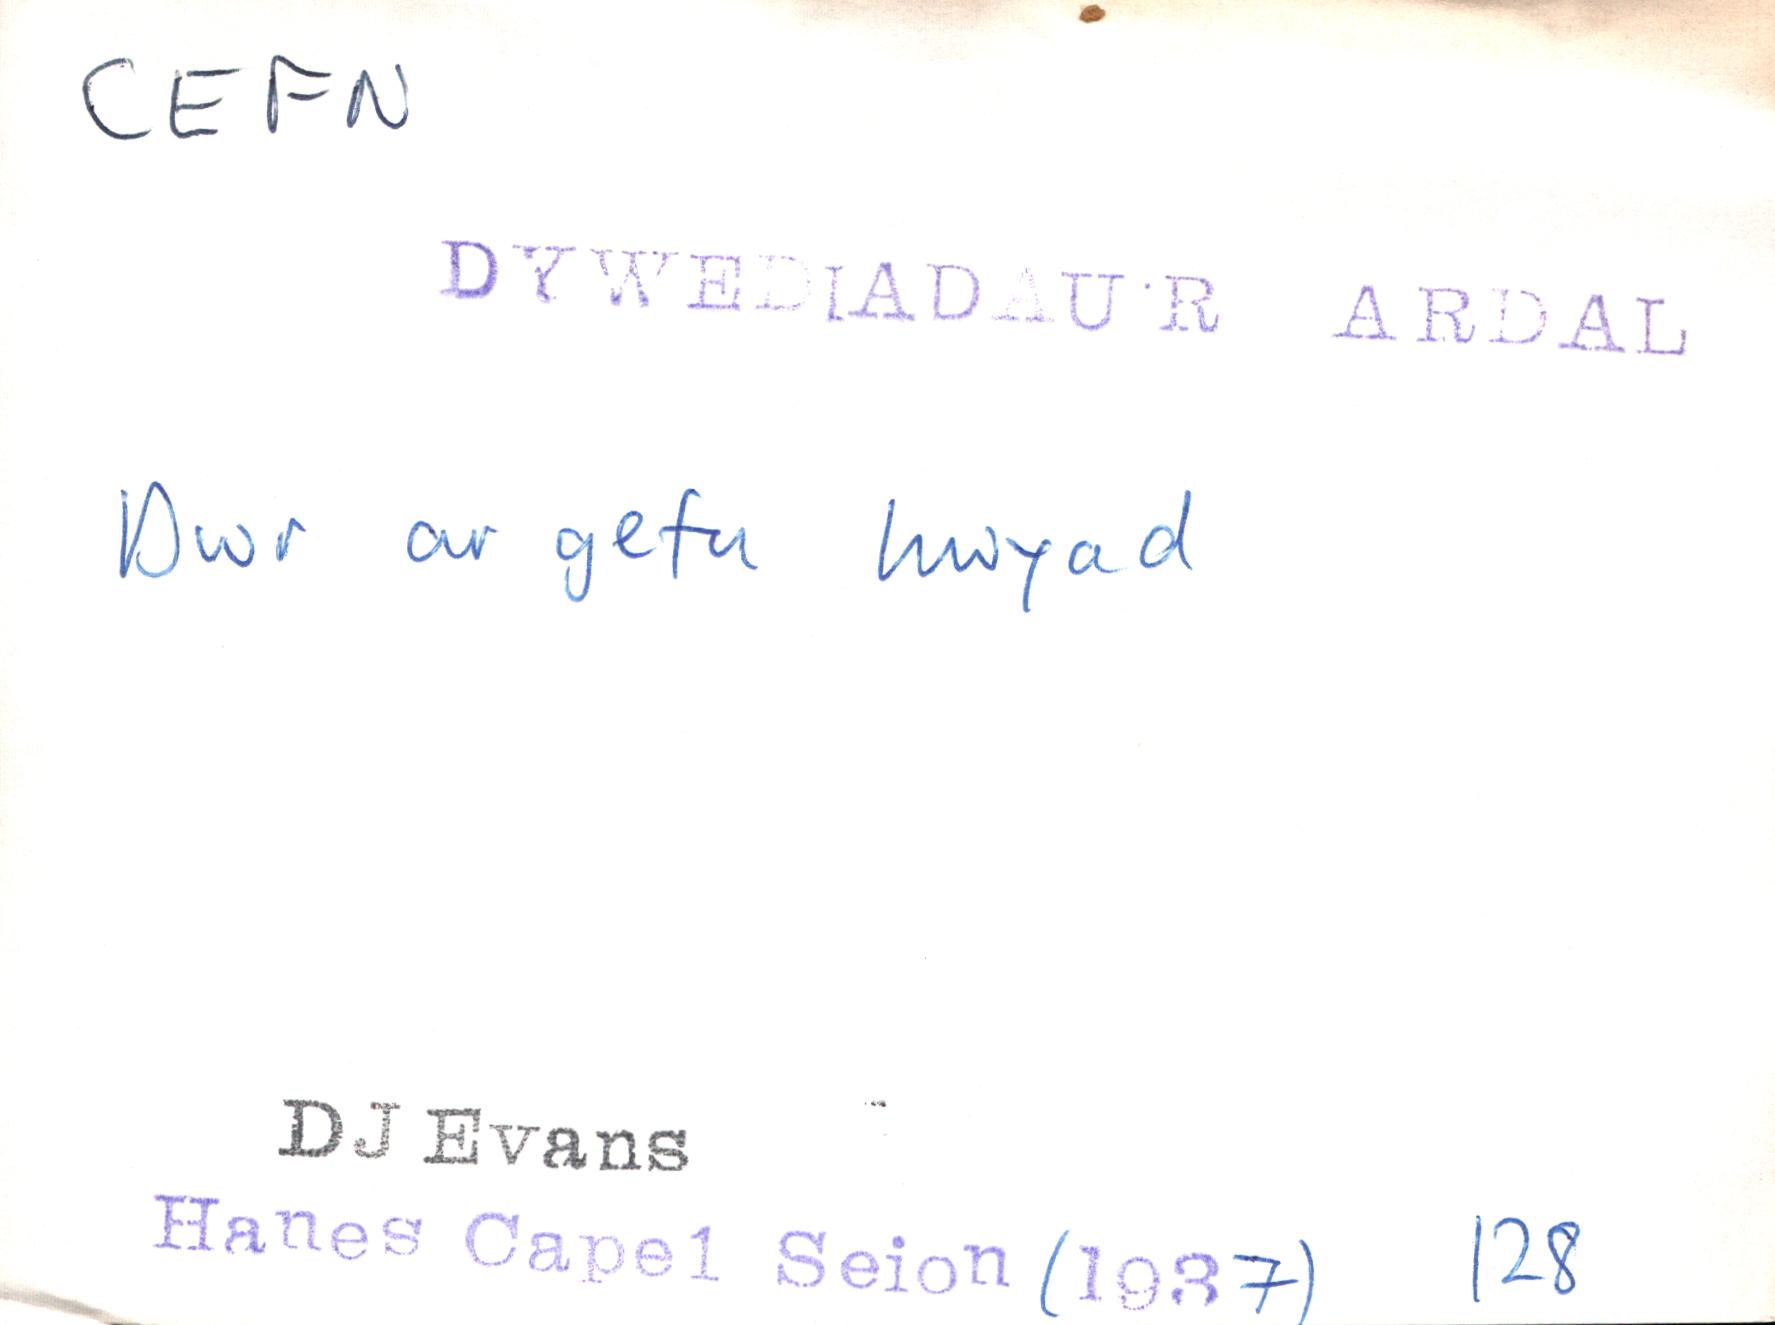 CEFN
DYWEDIADAU'R ARDAL
Dwr ar gefn hwyad
DJ Evans
Hanes Capel Seion (1937) 128